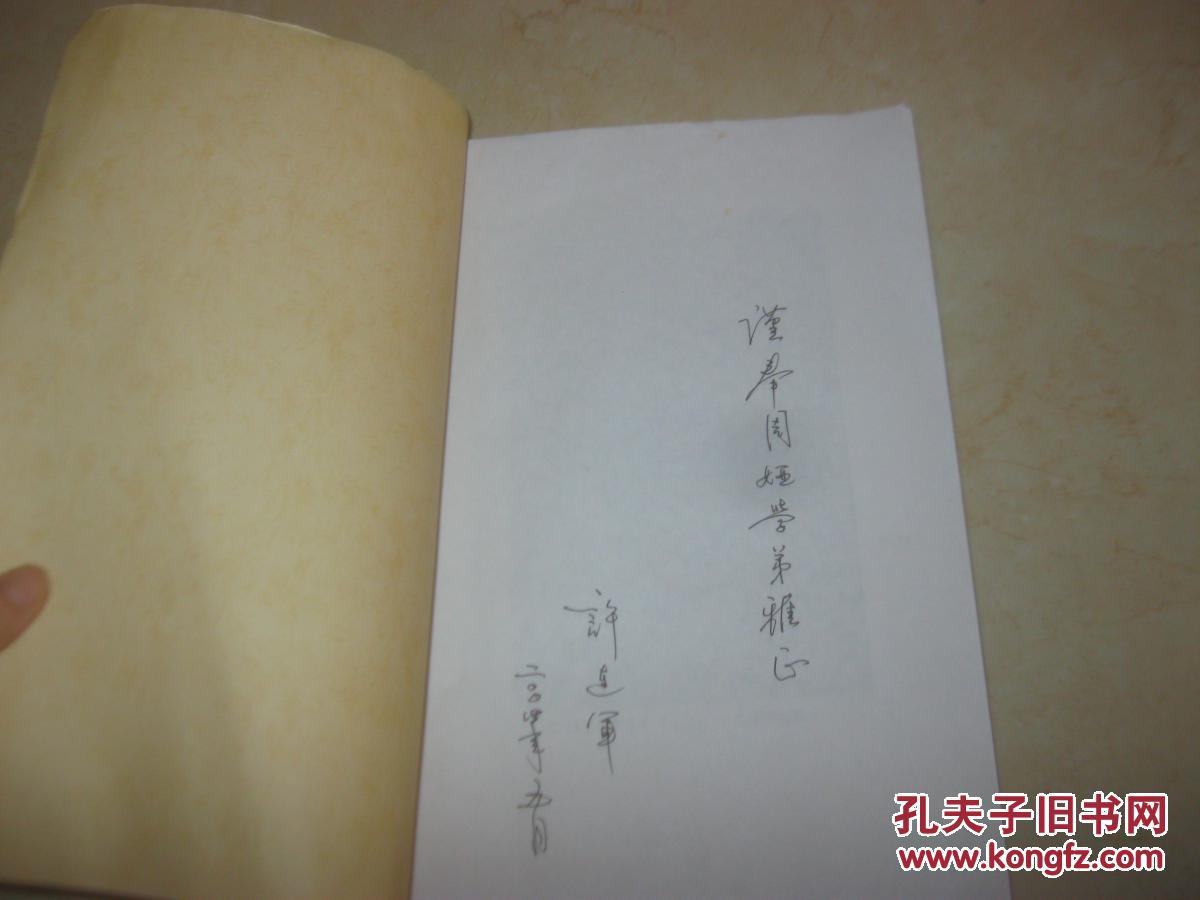 謹奉周婭学弟雅正
許建軍
二〇〇四年五月
孔夫子旧书网
www.kongfz.com